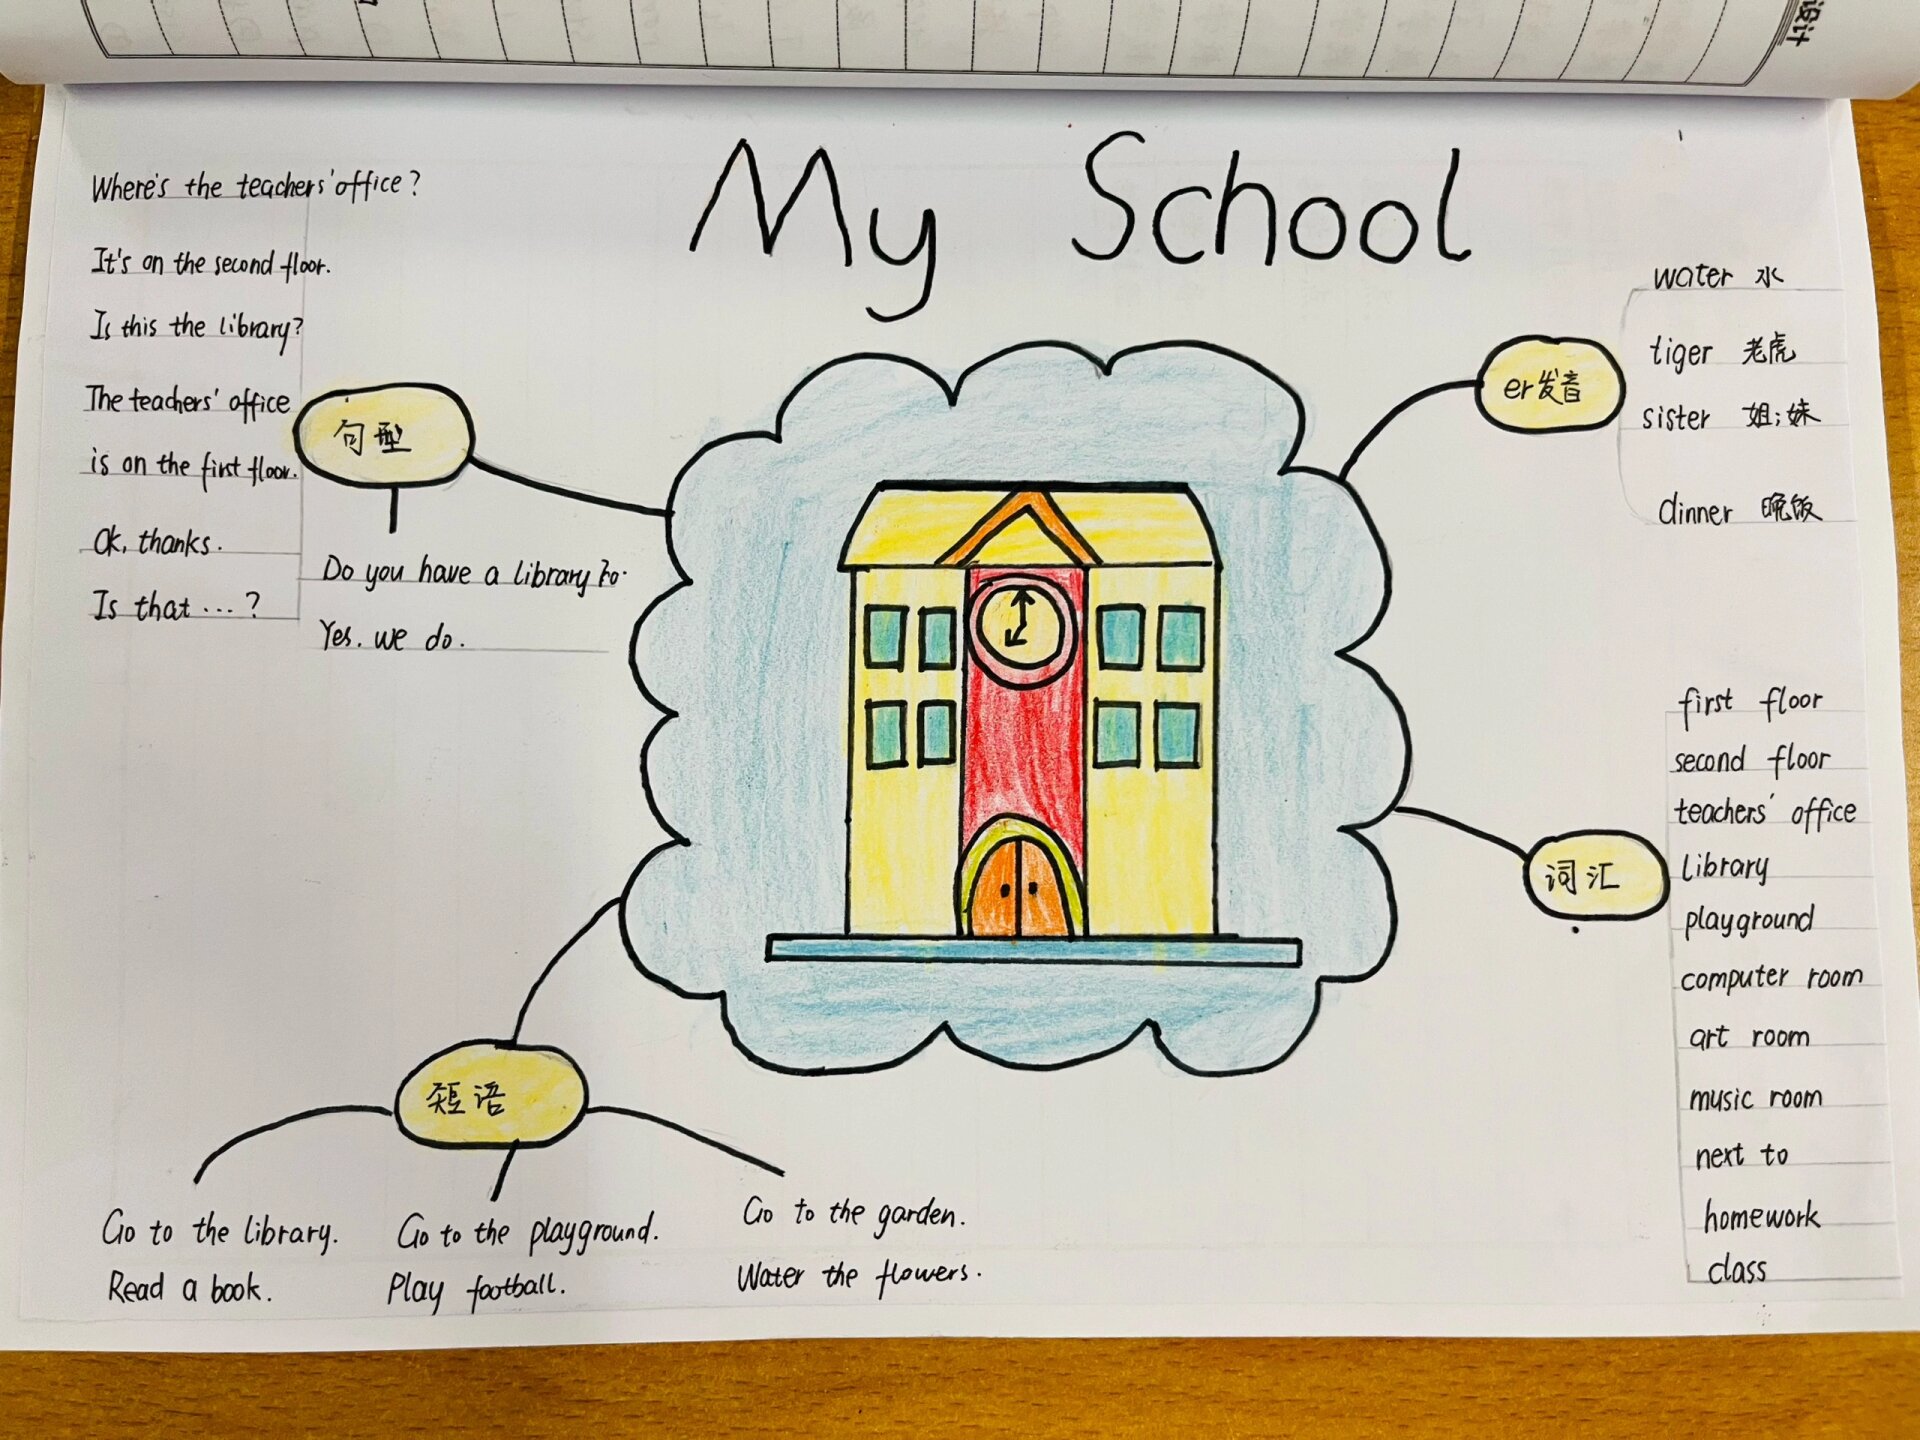 设计
My School
Where's the teachers' office?
It's on the second floor.
Is this the library?
The teachers' office
is on the first floor.
Ok, thanks.
Is that ...?
句型
Do you have a library
Yes. we do.
er发音
water 水
tiger 老虎
sister 姐;妹
dinner 晚饭
词汇
first floor
second floor
teachers' office
library
playground
computer room
art room
music room
next to
homework
class
短语
Go to the library.
Read a book.
Go to the playground.
Play football.
Go to the garden.
Water the flowers.